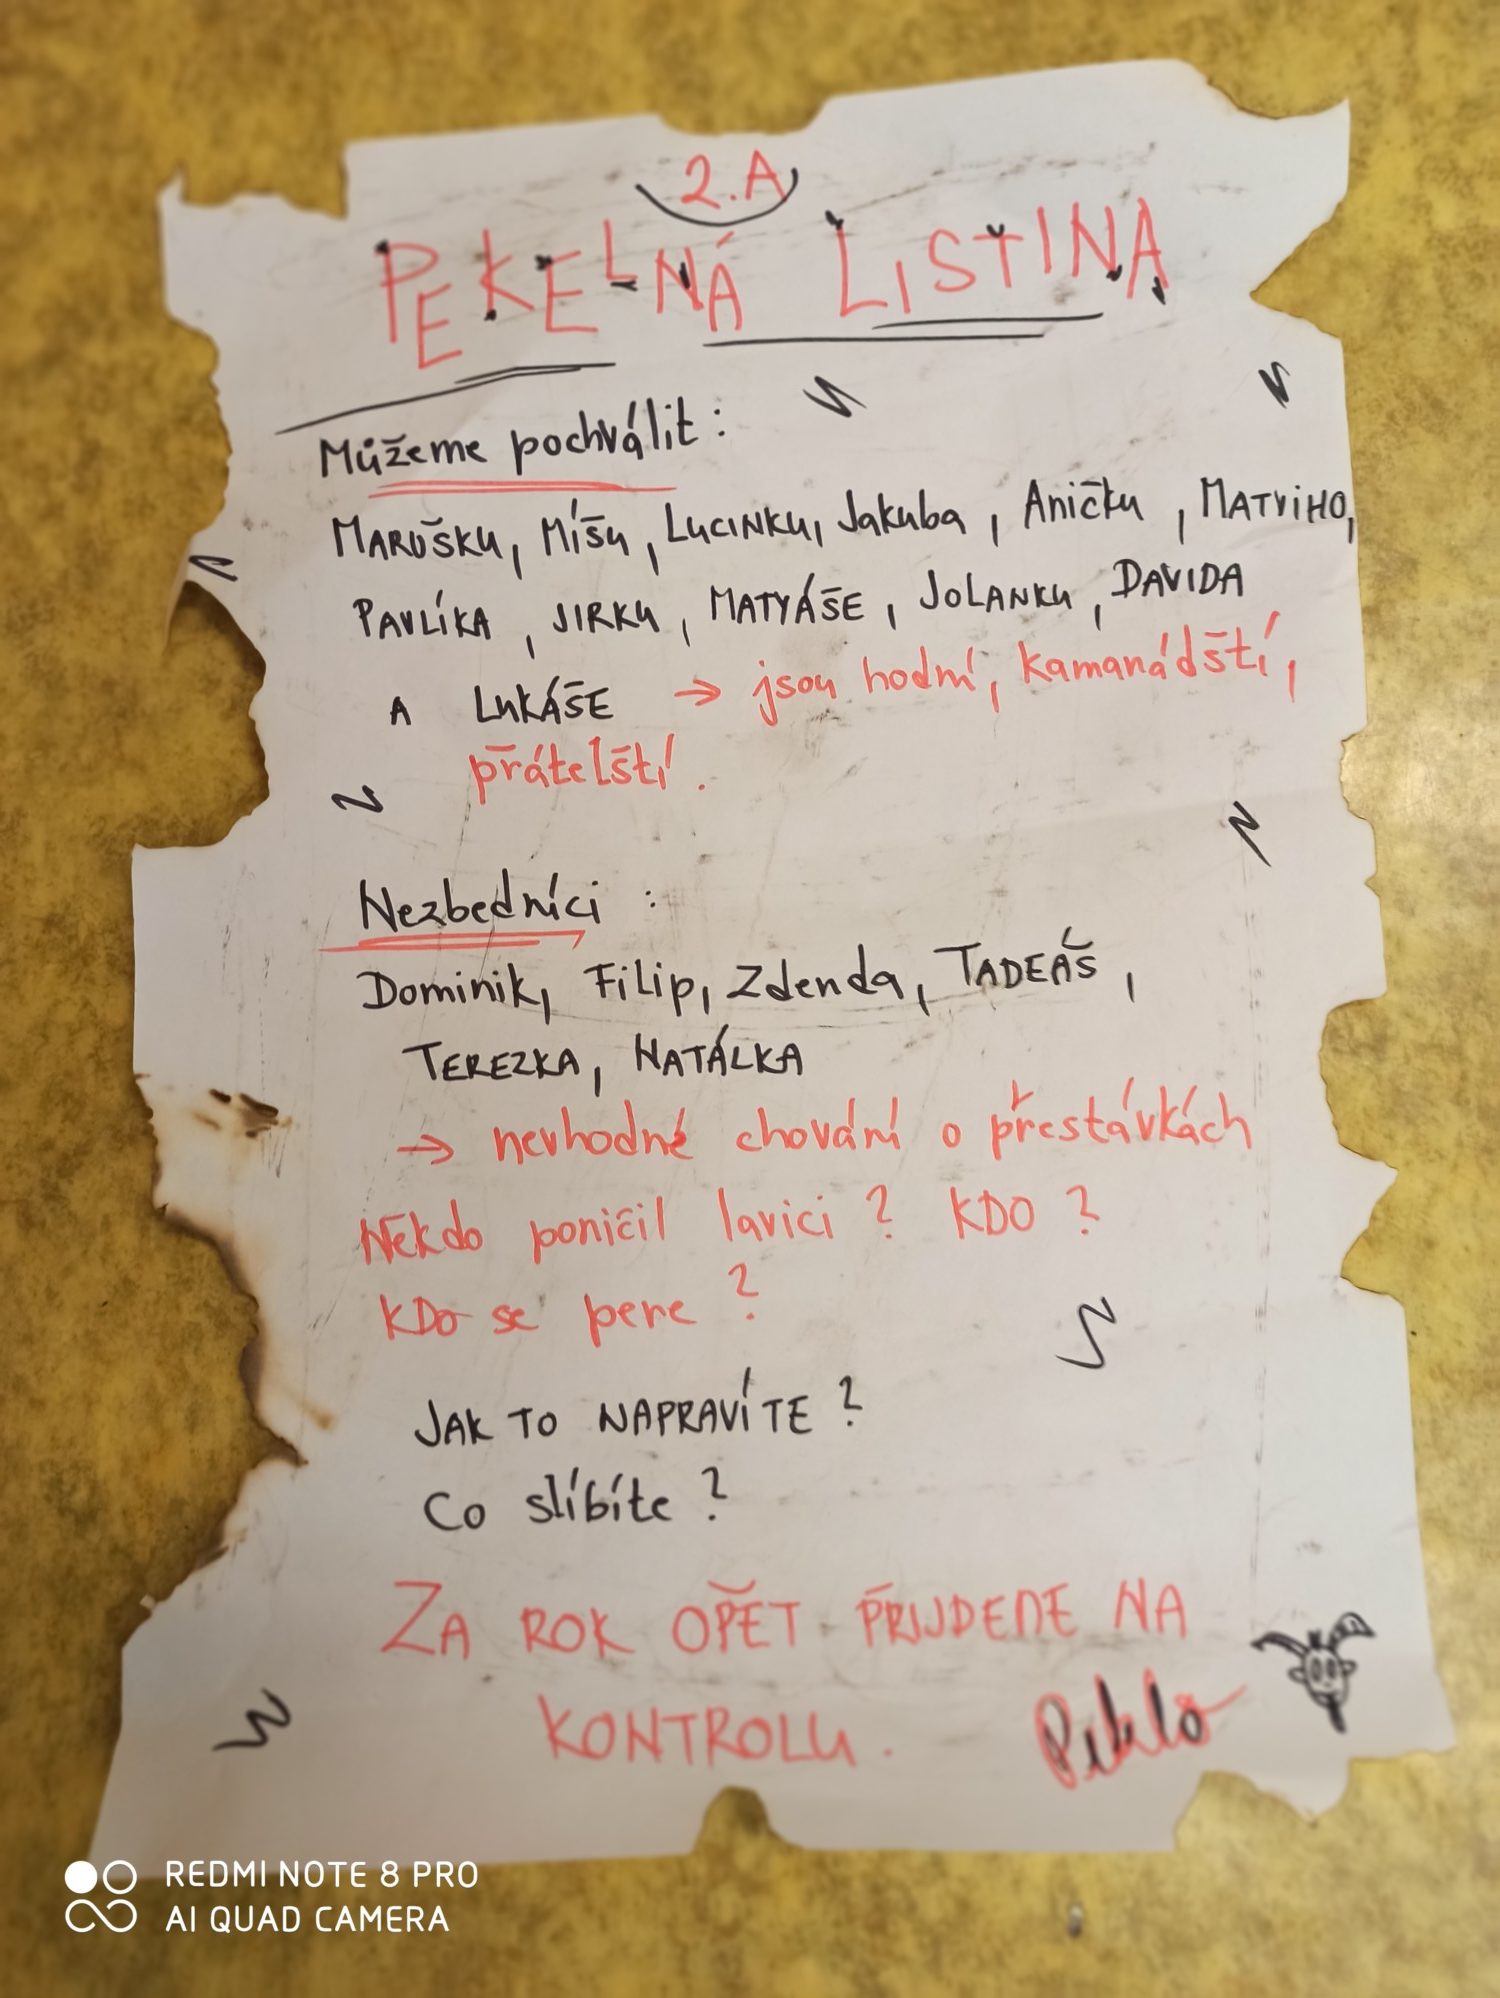 2.A
PEKELNÁ LISTINA
Můžeme pochválit:
MARUŠKU, MÍŠU, LUCINKU, Jakuba, Aničku, MATYIHO,
PAVLÍKA, JIRKU, MATYÁŠE, JOLANKU, DAVIDA
A LUKÁŠE → jsou hodní, kamanádští,
přátelští.
Nezbedníci:
Dominik, Filip, Zdenda, TADEÁŠ,
TEREZKA, NATÁLKA
→ nevhodné chování o přestávkách
Někdo poničil lavici? KDO?
KDO se pere?
JAK TO NAPRAVÍTE?
Co slíbíte?
ZA ROK OPĚT PŘIJDEME NA
KONTROLU. Peklo
REDMI NOTE 8 PRO
AI QUAD CAMERA